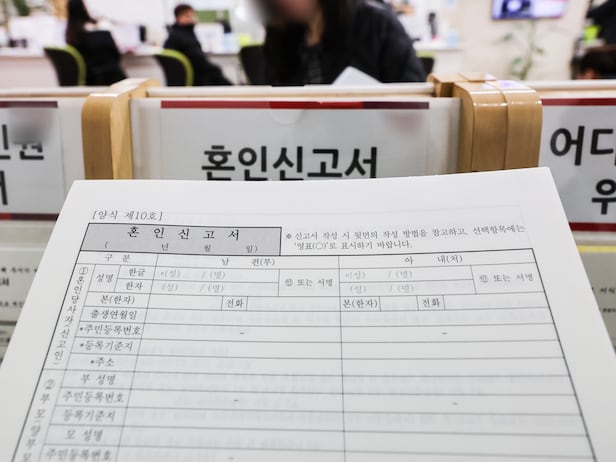 혼인신고서
어디
위
[양식 제10호]
혼 인 신 고 서
( 년 월 일)
※ 신고서 작성 시 뒷면의 작성 방법을 참고하고, 선택항목에는
'영표(○)'로 표시하기 바랍니다.
구 분 남 편(부) 아 내(처)
① 혼인당사자(신고인)
성명 한글 *(성) / (명) ㊞ 또는 서명 *(성) / (명) ㊞ 또는 서명
한자 (성) / (명) (성) / (명)
본(한자) 전화 본(한자) 전화
출생연월일
*주민등록번호 - -
*등록기준지
*주소
② 부모(양부모
부 성명
주민등록번호 - -
등록기준지
모 성명
주민등록번호